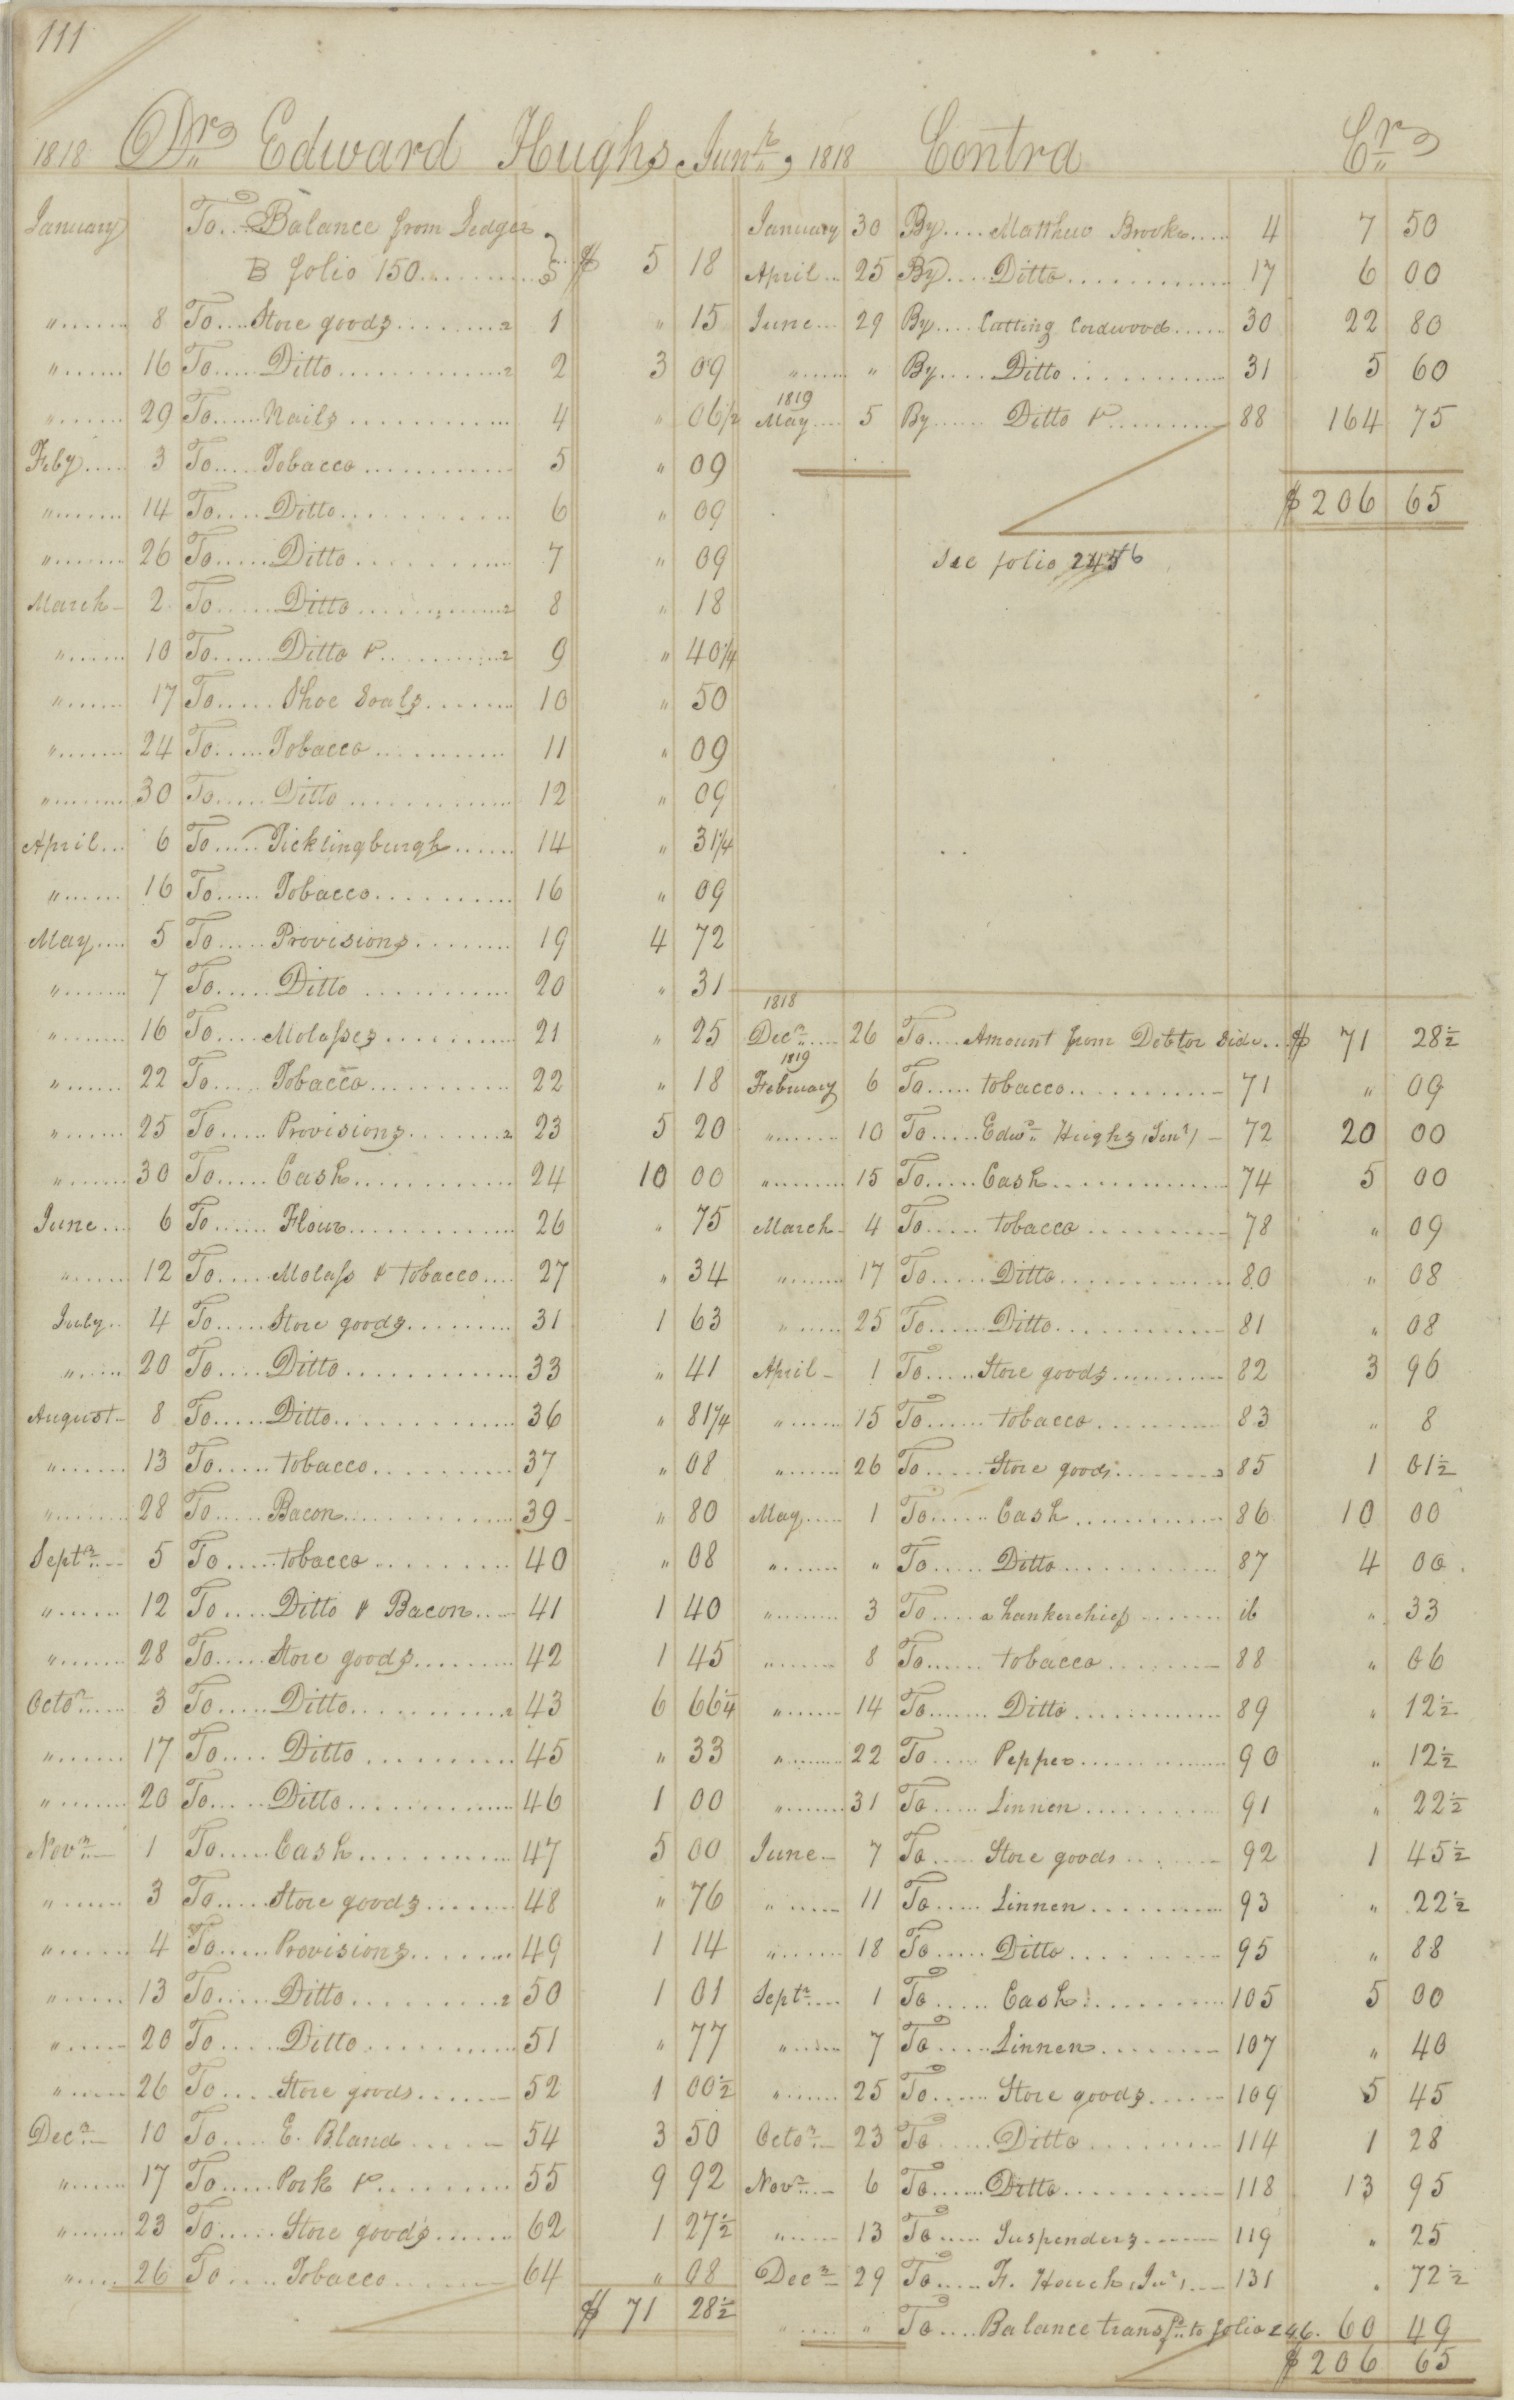 111
1818 Dr. Edward Hughs Junr., 1818 Contra Cr.
January To.. Balance from Ledger
B folio 150.......... $ 5 18
"....... 8 To.... Store goods......... 1 " 15
"....... 16 To..... Ditto............. 2 3 09
"....... 29 To...... Nails............ 4 " 06 1/2
Feby..... 3 To..... Tobacco........... 5 " 09
"....... 14 To..... Ditto............ 6 " 09
"....... 26 To...... Ditto........... 7 " 09
March - 2 To...... Ditto............ 8 " 18
"....... 10 To....... Ditto &........... 9 " 40 1/4
"...... 17 To...... Shoe Soals........ 10 " 50
"....... 24 To..... Tobacco.......... 11 " 09
"....... 30 To..... Ditto............. 12 " 09
April... 6 To..... Ticklingburgh...... 14 " 31 1/4
"...... 16 To..... Tobacco........... 16 " 09
May.... 5 To..... Provisions......... 19 4 72
"....... 7 To...... Ditto............ 20 " 31
"....... 16 To..... Molasses.......... 21 " 25
"....... 22 To..... Tobacco........... 22 " 18
"...... 25 To..... Provisions........ 23 5 20
"...... 30 To..... Cash............. 24 10 00
June.... 6 To...... Flour............. 26 " 75
"...... 12 To..... Molass & tobacco.... 27 " 34
July.. 4 To..... Store goods......... 31 1 63
"...... 20 To.... Ditto............. 33 " 41
August - 8 To..... Ditto............. 36 " 81 1/4
"....... 13 To..... tobacco........... 37 " 08
"........ 28 To..... Bacon............. 39 " 80
Septr. 5 To..... tobacco.......... 40 " 08
"....... 12 To..... Ditto & Bacon..... 41 1 40
"....... 28 To..... Store goods........ 42 1 45
Octor. 3 To..... Ditto........... 43 6 66 1/4
"....... 17 To..... Ditto.......... 45 " 33
"....... 20 To..... Ditto............. 46 1 00
Novr. 1 To..... Cash........... 47 5 00
"...... 3 To..... Store goods....... 48 " 76
"....... 4 To..... Provisions....... 49 1 14
"...... 13 To..... Ditto.......... 50 1 01
"...... 20 To..... Ditto........... 51 " 77
"...... 26 To.... Store goods...... 52 1 00 1/2
Decr. 10 To.... E. Bland..... 54 3 50
"...... 17 To..... Pork &......... 55 9 92
"...... 23 To..... Store goods...... 62 1 27 1/2
"..... 26 To..... Tobacco....... 64 " 08
$ 71 28 1/2
January 30 By.... Matthew Brooke..... 4 7 50
April... 25 By.... Ditto............ 17 6 00
June... 29 By.... Cutting Cordwood...... 30 22 80
"...... " By..... Ditto........... 31 5 60
1819
May.... 5 By...... Ditto &......... 88 164 75
$ 206 65
See folio 246
1818
Decr. 26 To.... Amount from Debtor side.. $ 71 28 1/2
1819
February 6 To..... tobacco.......... 71 " 09
"....... 10 To..... Edwd. Hughs, (Senr) - 72 20 00
"........ 15 To..... Cash............. 74 5 00
March - 4 To..... tobacco.......... 78 " 09
"........ 17 To...... Ditto............ 80 " 08
"...... 25 To...... Ditto............ 81 " 08
April - 1 To..... Store goods.......... 82 3 96
"...... 15 To...... tobacco......... 83 " 8
"....... 26 To..... Store goods........ 85 1 01 1/2
May..... 1 To...... Cash............ 86 10 00
"....... " To..... Ditto............ 87 4 00
"........ 3 To..... a hankerchief........ ib " 33
"....... 8 To...... tobacco........ 88 " 06
"....... 14 To....... Ditto............ 89 " 12 1/2
"....... 22 To..... Pepper............ 90 " 12 1/2
"........ 31 To..... Linnen.......... 91 " 22 1/2
June - 7 To..... Store goods........ 92 1 45 1/2
"...... 11 To..... Linnen.......... 93 " 22 1/2
"....... 18 To...... Ditto.......... 95 " 88
Septr.... 1 To...... Cash........... 105 5 00
"...... 7 To..... Linnen........ 107 " 40
"....... 25 To...... Store goods...... 109 5 45
Octor. 23 To...... Ditto......... 114 1 28
Novr. 6 To...... Ditto........... 118 13 95
"...... 13 To..... Suspenders....... 119 " 25
Decr. 29 To..... F. Houck, (Jur).... 131 " 72 1/2
"..... " To.... Balance transfr. to folio 246. 60 49
$ 206 65